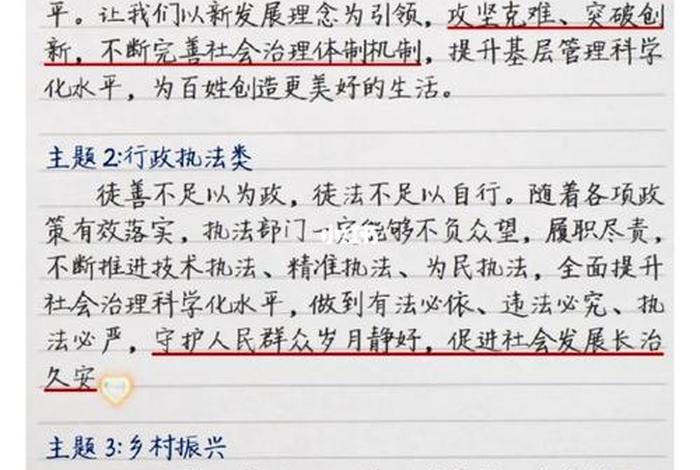 平。让我们以新发展理念为引领，攻坚克难、突破创
新，不断完善社会治理体制机制，提升基层管理科学
化水平，为百姓创造更美好的生活。
主题2:行政执法类
徒善不足以为政，徒法不足以自行。随着各项政
策有效落实，执法部门一定能够不负众望，履职尽责，
不断推进技术执法、精准执法、为民执法，全面提升
社会治理科学化水平，做到有法必依、违法必究、执
法必严，守护人民群众岁月静好，促进社会发展长治
久安
主题3:乡村振兴